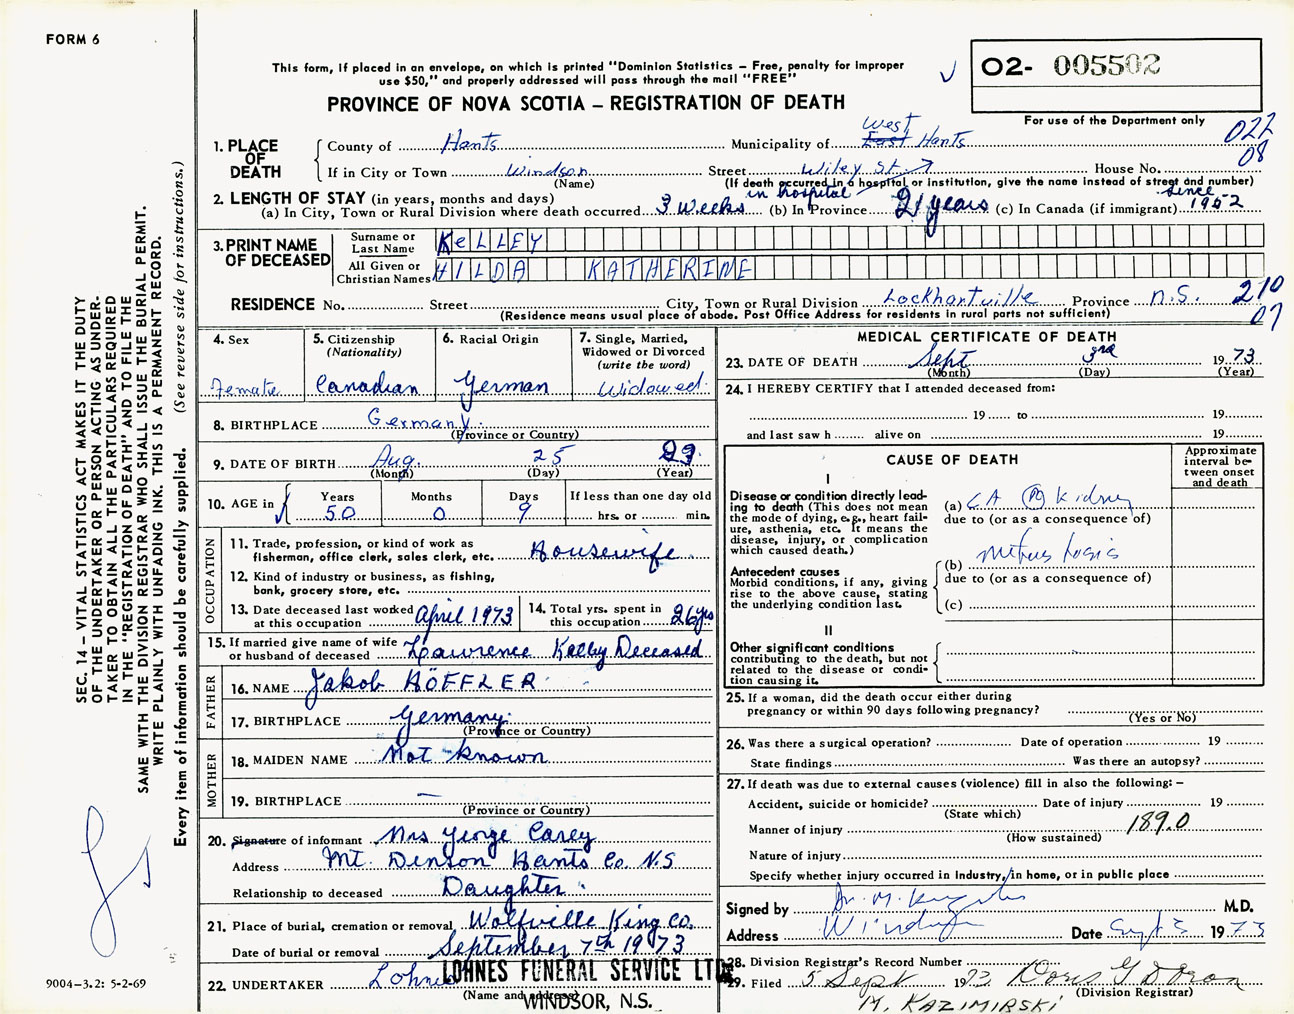 FORM 6
This form, if placed in an envelope, on which is printed "Dominion Statistics – Free, penalty for improper
use $50," and properly addressed will pass through the mail "FREE"
PROVINCE OF NOVA SCOTIA – REGISTRATION OF DEATH
02- 005502
For use of the Department only
022
08
1. PLACE OF DEATH
County of Hants Municipality of East West Hants
If in City or Town Windsor Street Wiley St. House No.
(Name) (If death occurred in a hospital or institution, give the name instead of street and number)
2. LENGTH OF STAY (in years, months and days) in hospital since
(a) In City, Town or Rural Division where death occurred 3 weeks (b) In Province 21 years (c) In Canada (if immigrant) 1952
3. PRINT NAME OF DECEASED
Surname or Last Name KeLLEY
All Given or Christian Names HILDA KATHERINE
RESIDENCE No. Street City, Town or Rural Division Lockhartville Province N.S. 210
07
(Residence means usual place of abode. Post Office Address for residents in rural parts not sufficient)
4. Sex Female
5. Citizenship (Nationality) Canadian
6. Racial Origin German
7. Single, Married, Widowed or Divorced (write the word) Widowed
8. BIRTHPLACE Germany
(Province or Country)
9. DATE OF BIRTH Aug. 25 23
(Month) (Day) (Year)
10. AGE in Years 50 Months 0 Days 9 If less than one day old
hrs. or min.
OCCUPATION
11. Trade, profession, or kind of work as
fisherman, office clerk, sales clerk, etc. Housewife
12. Kind of industry or business, as fishing,
bank, grocery store, etc.
13. Date deceased last worked at this occupation April 1973
14. Total yrs. spent in this occupation 26 yrs
15. If married give name of wife
or husband of deceased Lawrence Kelley Deceased
FATHER
16. NAME Jakob HÖFFLER
17. BIRTHPLACE Germany
(Province or Country)
MOTHER
18. MAIDEN NAME Not known
19. BIRTHPLACE —
(Province or Country)
20. Signature of informant Mrs George Carey
Address Mt. Denson Hants Co. N.S
Relationship to deceased Daughter
21. Place of burial, cremation or removal Wolfville King Co.
Date of burial or removal September 7th 1973
22. UNDERTAKER Lohnes LOHNES FUNERAL SERVICE LTD
(Name and address)
WINDSOR, N.S.
MEDICAL CERTIFICATE OF DEATH
23. DATE OF DEATH Sept 3rd 1973
(Month) (Day) (Year)
24. I HEREBY CERTIFY that I attended deceased from:
19 to 19
and last saw h alive on 19
CAUSE OF DEATH
Approximate interval between onset and death
I
Disease or condition directly lead-
ing to death (This does not mean
the mode of dying, e.g., heart fail-
ure, asthenia, etc. It means the
disease, injury, or complication
which caused death.)
(a) CA (R) Kidney
due to (or as a consequence of)
Antecedent causes
Morbid conditions, if any, giving
rise to the above cause, stating
the underlying condition last.
(b)
due to (or as a consequence of)
(c)
II
Other significant conditions
contributing to the death, but not
related to the disease or condi-
tion causing it.
25. If a woman, did the death occur either during
pregnancy or within 90 days following pregnancy?
(Yes or No)
26. Was there a surgical operation? Date of operation 19
State findings Was there an autopsy?
27. If death was due to external causes (violence) fill in also the following: –
Accident, suicide or homicide? Date of injury 19
(State which)
Manner of injury 189.0
(How sustained)
Nature of injury
Specify whether injury occurred in industry, in home, or in public place
Signed by Dr. M. M.D.
Address Windsor Date Sept 3 1973
28. Division Registrar's Record Number
29. Filed 5 Sept 1973 Doris
(Division Registrar)
M. KAZIMIRSKI
SEC. 14 – VITAL STATISTICS ACT MAKES IT THE DUTY
OF THE UNDERTAKER OR PERSON ACTING AS UNDER-
TAKER TO OBTAIN ALL THE PARTICULARS REQUIRED
IN THE "REGISTRATION OF DEATH" AND TO FILE THE
SAME WITH THE DIVISION REGISTRAR WHO SHALL ISSUE THE BURIAL PERMIT.
WRITE PLAINLY WITH UNFADING INK. THIS IS A PERMANENT RECORD.
Every item of information should be carefully supplied. (See reverse side for instructions.)
9004-3.2: 5-2-69